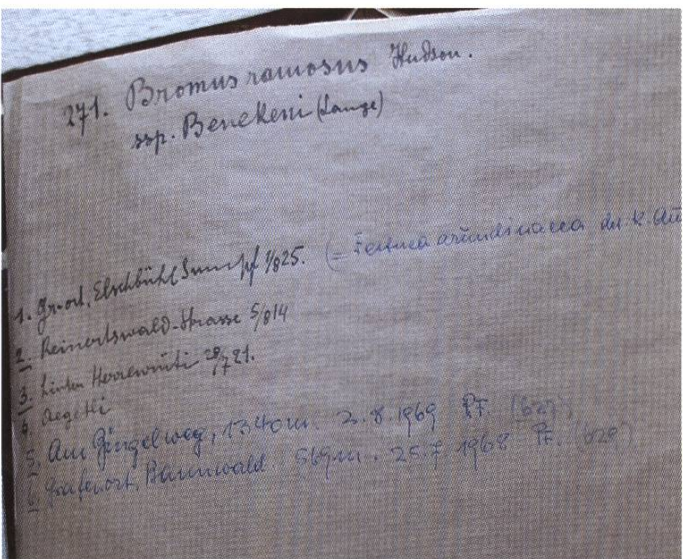 271. Bromus ramosus Hudson.
ssp. Benekeni (Lange)
1. Gr-ort, Eschbühl Sumpf 1/825. (= Festuca arundinacea det. K. Au
2. Reinertswald-Strasse 5/814
3. Linter 28/7 21.
4. Aegetli
5. Am Gingelweg, 1340m. 2.8.1969 Pf. (629)
6. Grafenort, Bannwald. 569m. 25.7 1968 Pf. (629)